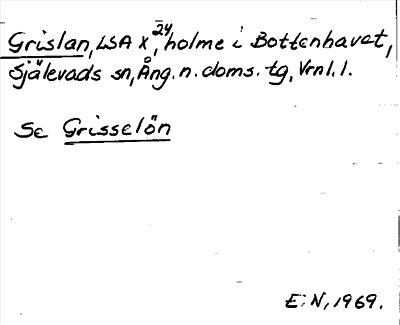 Grislan, LSA X, 24, holme i Bottenhavet,
Själevads sn, Ång. n. doms. tg, Vrnl. l.
Se Grisselön
E. N, 1969.